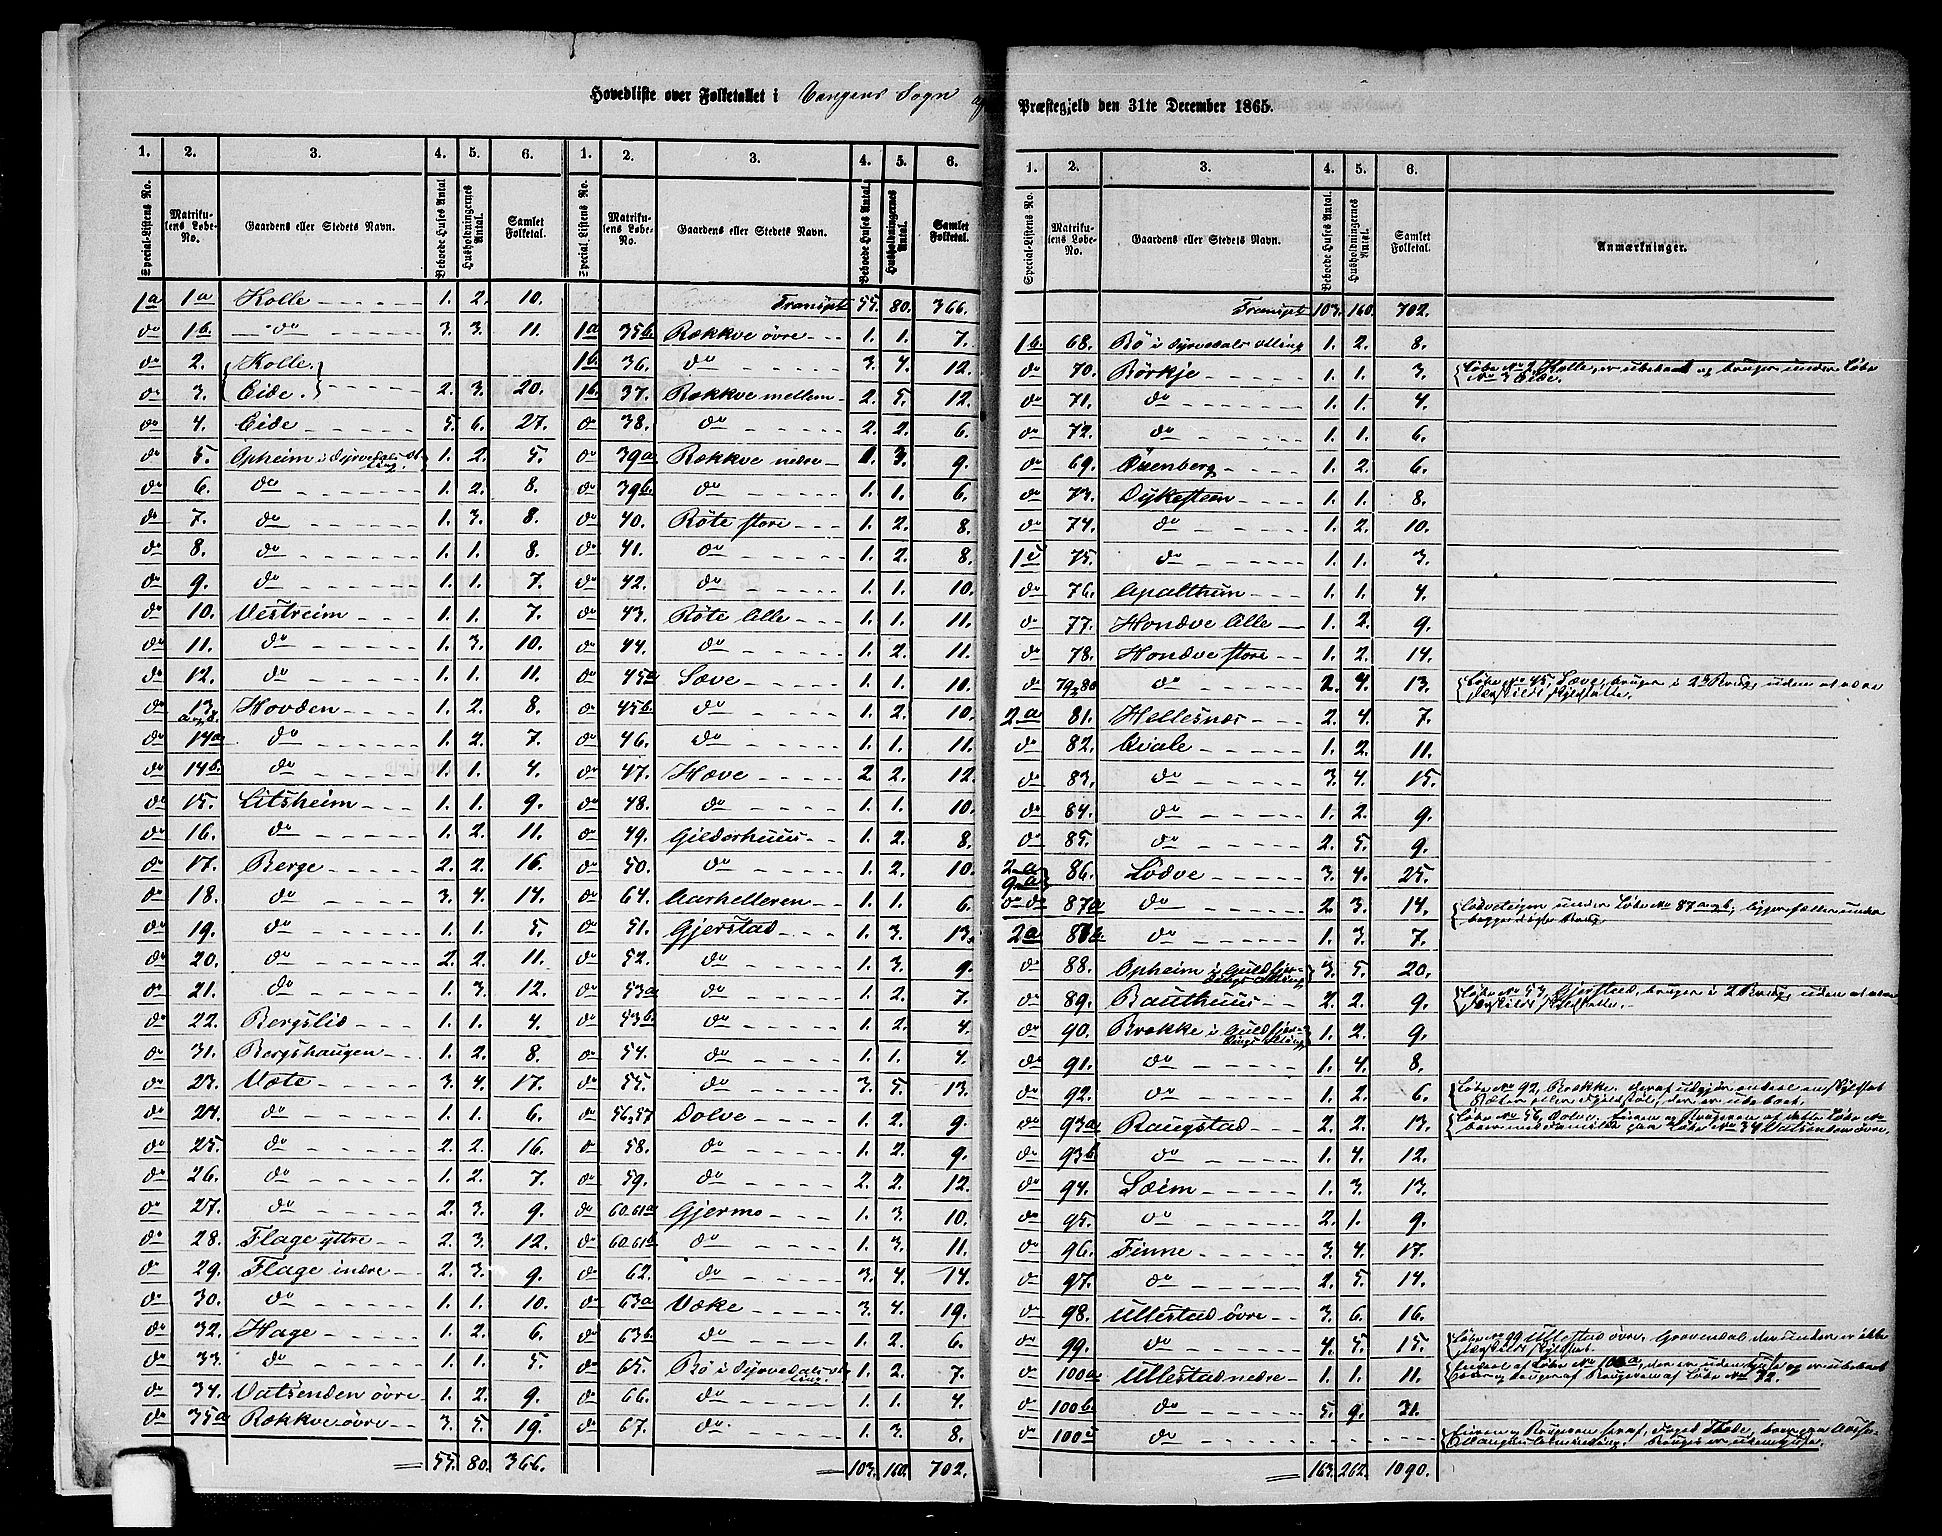 Hovedliste over Folketallet i Vangens Sogn af Præstegjeld den 31te December 1865.
1. 2. 3. 4. 5. 6. 1. 2. 3. 4. 5. 6.
Special-Listens No. Matrikulens Løbe-No. Gaardens eller Stedets Navn. Beboede Huses Antal Husholdningernes Antal. Samlet Folketal. Special Listens No. Matrikulens Løbe-No. Gaardens eller Stedets Navn. Beboede Huses Antal. Husholdningernes Antal. Samlet Folketal.
1a 1a Kolle 1. 2. 10. Transpt 55. 80. 366.
do 1b. do 3. 3. 11. 1a 35b. Rækkve øvre 1. 1. 7.
do 2. Kolle. 1b. 36. do 3. 4. 12.
do 3. Eide. 2. 3. 20. 1b. 37. Rækkve mellem 2. 5. 12.
do 4. Eide 5. 6. 27. do 38. do 2. 2. 6.
do 5. Opheim i Dyrvedals Ot ting. 1. 2. 5. do 39a Rækkve nedre 1. 3. 9.
do 6. do 1. 2. 8. do 39b. do 1. 1. 6.
do 7. do 1. 3. 8. do 40. Røte store 1. 2. 8.
do 8. do 1. 1. 8. do 41. do 1. 2. 8.
do 9. do 1. 1. 7. do 42. do 1. 1. 10.
do 10. Vestreim 1. 1. 7. do 43. Røte lille 1. 1. 11.
do 11. do 1. 3. 10. do 44. do 1. 2. 11.
do 12. do 1. 1. 11. do 45a Sæve 1. 1. 10.
do 13. a og b. Hovden 1. 2. 8. do 45b. do 1. 2. 10.
do 14a do 1. 2. 7. do 46. do 1. 1. 11.
do 14b. do 1. 1. 4. do 47. Hæve 2. 2. 12.
do 15. Litsheim 1. 1. 9. do 48. do 1. 1. 10.
do 16. do 1. 2. 11. do 49. Gilderhuus 1. 2. 8.
do 17. Berge 2. 2. 16. do 50. do 1. 2. 10.
do 18. do 3. 4. 14. do 64. Aarhelleren 1. 1. 6.
do 19. do 1. 1. 5. do 51. Gjerstad 1. 3. 13.
do 20. do 2. 2. 11. do 52. do 1. 3. 9.
do 21. do 1. 3. 12. do 53a do 1. 2. 7.
do 22. Bergslid 1. 1. 4. do 53b. do 1. 2. 4.
do 31. Bergshaugen 1. 2. 8. do 54. do 1. 1. 4.
do 23. Væte 3. 4. 17. do 55. do 3. 5. 13.
do 24. do 1. 1. 6. do 56,57 Dolve 1. 2. 9.
do 25. do 2. 2. 16. do 58. do 1. 2. 9.
do 26. do 1. 2. 7. do 59. do 2. 2. 12.
do 27. do 2. 3. 9. do 60.61a Gjermo 1. 3. 10.
do 28. Flage yttre 2. 3. 12. do 60.61b do 1. 3. 11.
do 29. Flage indre 2. 3. 9. do 62. do 3. 4. 14.
do 30. do 1. 1. 10. do 63a Væke 3. 4. 19.
do 32. Hage 1. 2. 6. do 63b. do 1. 2. 6.
do 33. do 1. 1. 5. do 65. Bø i Dyrvedals Ot ting. 1. 2. 7.
do 34. Vatsenden øvre 1. 2. 9. do 66. do 1. 1. 4.
do 35a Rækkve øvre 3. 5. 19. do 67. do 1. 3. 8.
55. 80. 366. 103. 160. 702.
1. 2. 3. 4. 5. 6.
Special-Listens No. Matrikulens Løbe-No. Gaardens eller Stedets Navn. Beboede Huses Antal. Husholdningernes Antal. Samlet Folketal. Anmærkninger.
Transpt 103. 160. 702.
1b. 68. Bø i Dyrvedals Otting 1. 2. 8.
do 70. Børkje 1. 1. 3. Løbe No 2, Kolle, er ubeboet og bruges under Løbe No 3 Eide.
do 71. do 1. 1. 4.
do 72. do 1. 1. 6.
do 69. Öxenberg 1. 2. 6.
do 73. Dykesteen 1. 1. 8.
do 74. do 1. 2. 10.
1c 75. do 1. 1. 3.
do 76. Apalthun 1. 1. 4.
do 77. Hondve lille 1. 2. 9.
do 78. Hondve store 1. 2. 14.
do 79,80 do 2. 4. 13. Løbe No 45, Sæve, bruges i 2 Brug, uden at være særskilt skyldsatte.
2a 81. Hellesnæs 2. 4. 7.
do 82. Qvale 1. 2. 11.
do 83. do 3. 4. 15.
do 84. do 1. 2. 9.
do 85. do 2. 5. 9.
2.a 9.a 86. Lødve 3. 4. 25.
do do 87a do 2. 3. 14. Lødveteigen under Løbe No 87 a og b, ligger fælles under begge disse Brug
2a 87b. do 1. 3. 7.
do 88. Opheim i Guldfjerdings Otting 3. 5. 20.
do 89. Bauthuus 2. 2. 9. Løbe No 53, Gjerstad, bruges i 2 Brug, uden at være særskilt skyldsatte.
do 90. Brække i Guldfjerdings Otting 1. 2. 9.
do 91. do 1. 4. 8.
do 92. do 1. 2. 6. Løbe No 92, Brække,
do 93a Baugstad 2. 2. 13. Løbe No 56, Dolve, Løbe No 34 Vatsenden øvre.
do 93b do 1. 4. 12.
do 94. Sæim 1. 3. 13.
do 95. do 2. 1. 9.
do 96. Finne 3. 4. 17.
do 97. do 2. 5. 14.
do 98. Ullestad øvre 3. 6. 16.
do 99. do 4. 5. 15. Løbe No 99 Ullestad øvre. Gravendal derunder er ikke særskilt skyldsat.
do 100a Ullestad nedre 1. 1. 11.
do 100b. do 5. 9. 31.
do 100c do
163. 262. 1090.